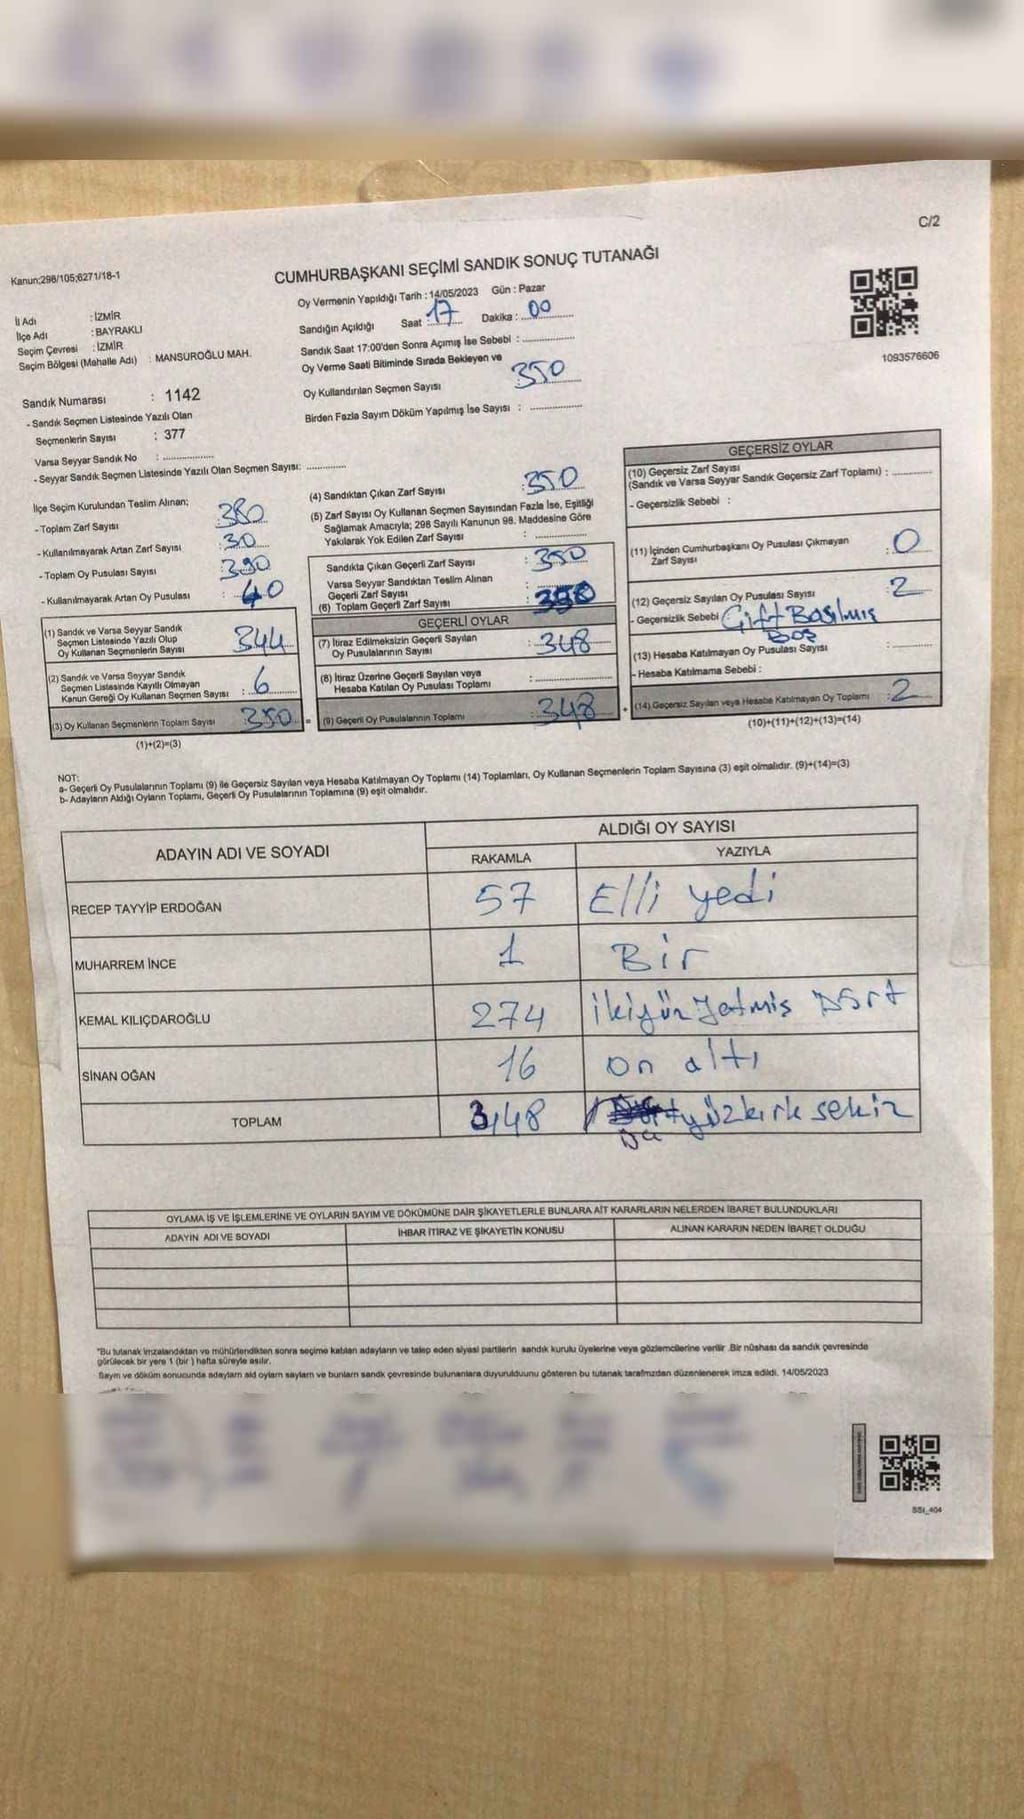 C/2
Kanun;298/105;6271/18-1
CUMHURBAŞKANI SEÇİMİ SANDIK SONUÇ TUTANAĞI
Oy Vermenin Yapıldığı Tarih : 14/05/2023 Gün : Pazar
Sandığın Açıldığı Saat : 17 Dakika : 00
Sandık Saat 17:00'den Sonra Açımış İse Sebebi :
Oy Verme Saati Bitiminde Sırada Bekleyen ve
Oy Kullandırılan Seçmen Sayısı 350
Birden Fazla Sayım Döküm Yapılmış İse Sayısı :
1093576606
İl Adı : İZMİR
İlçe Adı : BAYRAKLI
Seçim Çevresi : İZMİR
Seçim Bölgesi (Mahalle Adı) : MANSUROĞLU MAH.
Sandık Numarası : 1142
- Sandık Seçmen Listesinde Yazılı Olan
Seçmenlerin Sayısı : 377
Varsa Seyyar Sandık No :
- Seyyar Sandık Seçmen Listesinde Yazılı Olan Seçmen Sayısı:
İlçe Seçim Kurulundan Teslim Alınan;
- Toplam Zarf Sayısı : 380
- Kullanılmayarak Artan Zarf Sayısı : 30
- Toplam Oy Pusulası Sayısı : 390
- Kullanılmayarak Artan Oy Pusulası : 40
(1) Sandık ve Varsa Seyyar Sandık
Seçmen Listesinde Yazılı Olup
Oy Kullanan Seçmenlerin Sayısı 344
(2) Sandık ve Varsa Seyyar Sandık
Seçmen Listesinde Kayıtlı Olmayan
Kanun Gereği Oy Kullanan Seçmen Sayısı : 6
(3) Oy Kullanan Seçmenlerin Toplam Sayısı 350
(1)+(2)=(3)
(4) Sandıktan Çıkan Zarf Sayısı : 350
(5) Zarf Sayısı Oy Kullanan Seçmen Sayısından Fazla İse, Eşitliği
Sağlamak Amacıyla; 298 Sayılı Kanunun 98. Maddesine Göre
Yakılarak Yok Edilen Zarf Sayısı :
Sandıkta Çıkan Geçerli Zarf Sayısı : 350
Varsa Seyyar Sandıktan Teslim Alınan
Geçerli Zarf Sayısı :
(6) Toplam Geçerli Zarf Sayısı 350
GEÇERLİ OYLAR
(7) İtiraz Edilmeksizin Geçerli Sayılan
Oy Pusulalarının Sayısı : 348
(8) İtiraz Üzerine Geçerli Sayılan veya
Hesaba Katılan Oy Pusulası Toplamı :
= (9) Geçerli Oy Pusulalarının Toplamı 348
GEÇERSİZ OYLAR
(10) Geçersiz Zarf Sayısı
(Sandık ve Varsa Seyyar Sandık Geçersiz Zarf Toplamı) :
- Geçersizlik Sebebi :
(11) İçinden Cumhurbaşkanı Oy Pusulası Çıkmayan
Zarf Sayısı : 0
(12) Geçersiz Sayılan Oy Pusulası Sayısı : 2
- Geçersizlik Sebebi Çift Basılmış
Boş
(13) Hesaba Katılmayan Oy Pusulası Sayısı :
- Hesaba Katılmama Sebebi :
+ (14) Geçersiz Sayılan veya Hesaba Katılmayan Oy Toplamı : 2
(10)+(11)+(12)+(13)=(14)
NOT:
a- Geçerli Oy Pusulalarının Toplamı (9) ile Geçersiz Sayılan veya Hesaba Katılmayan Oy Toplamı (14) Toplamları, Oy Kullanan Seçmenlerin Toplam Sayısına (3) eşit olmalıdır. (9)+(14)=(3)
b- Adayların Aldığı Oyların Toplamı, Geçerli Oy Pusulalarının Toplamına (9) eşit olmalıdır.
ADAYIN ADI VE SOYADI ALDIĞI OY SAYISI
RAKAMLA YAZIYLA
RECEP TAYYİP ERDOĞAN 57 Elli yedi
MUHARREM İNCE 1 Bir
KEMAL KILIÇDAROĞLU 274 ikiyüz yetmiş Dört
SİNAN OĞAN 16 on altı
TOPLAM 348 yüzkırk sekiz
OYLAMA İŞ VE İŞLEMLERİNE VE OYLARIN SAYIM VE DÖKÜMÜNE DAİR ŞİKAYETLERLE BUNLARA AİT KARARLARIN NELERDEN İBARET BULUNDUKLARI
ADAYIN ADI VE SOYADI İHBAR İTİRAZ VE ŞİKAYETİN KONUSU ALINAN KARARIN NEDEN İBARET OLDUĞU
"Bu tutanak imzalandıktan ve mühürlendikten sonra seçime katılan adayların ve talep eden siyasi partilerin sandık kurulu üyelerine veya gözlemcilerine verilir .Bir nüshası da sandık çevresinde
görülecek bir yere 1 (bir) hafta süreyle asılır.
Sayım ve döküm sonucunda adayların ald oyların sayların ve bunların sandk çevresinde bulunanlara duyurulduunu gösteren bu tutanak tarafmzdan düzenlenerek imza edildi. 14/05/2023
SSI_404